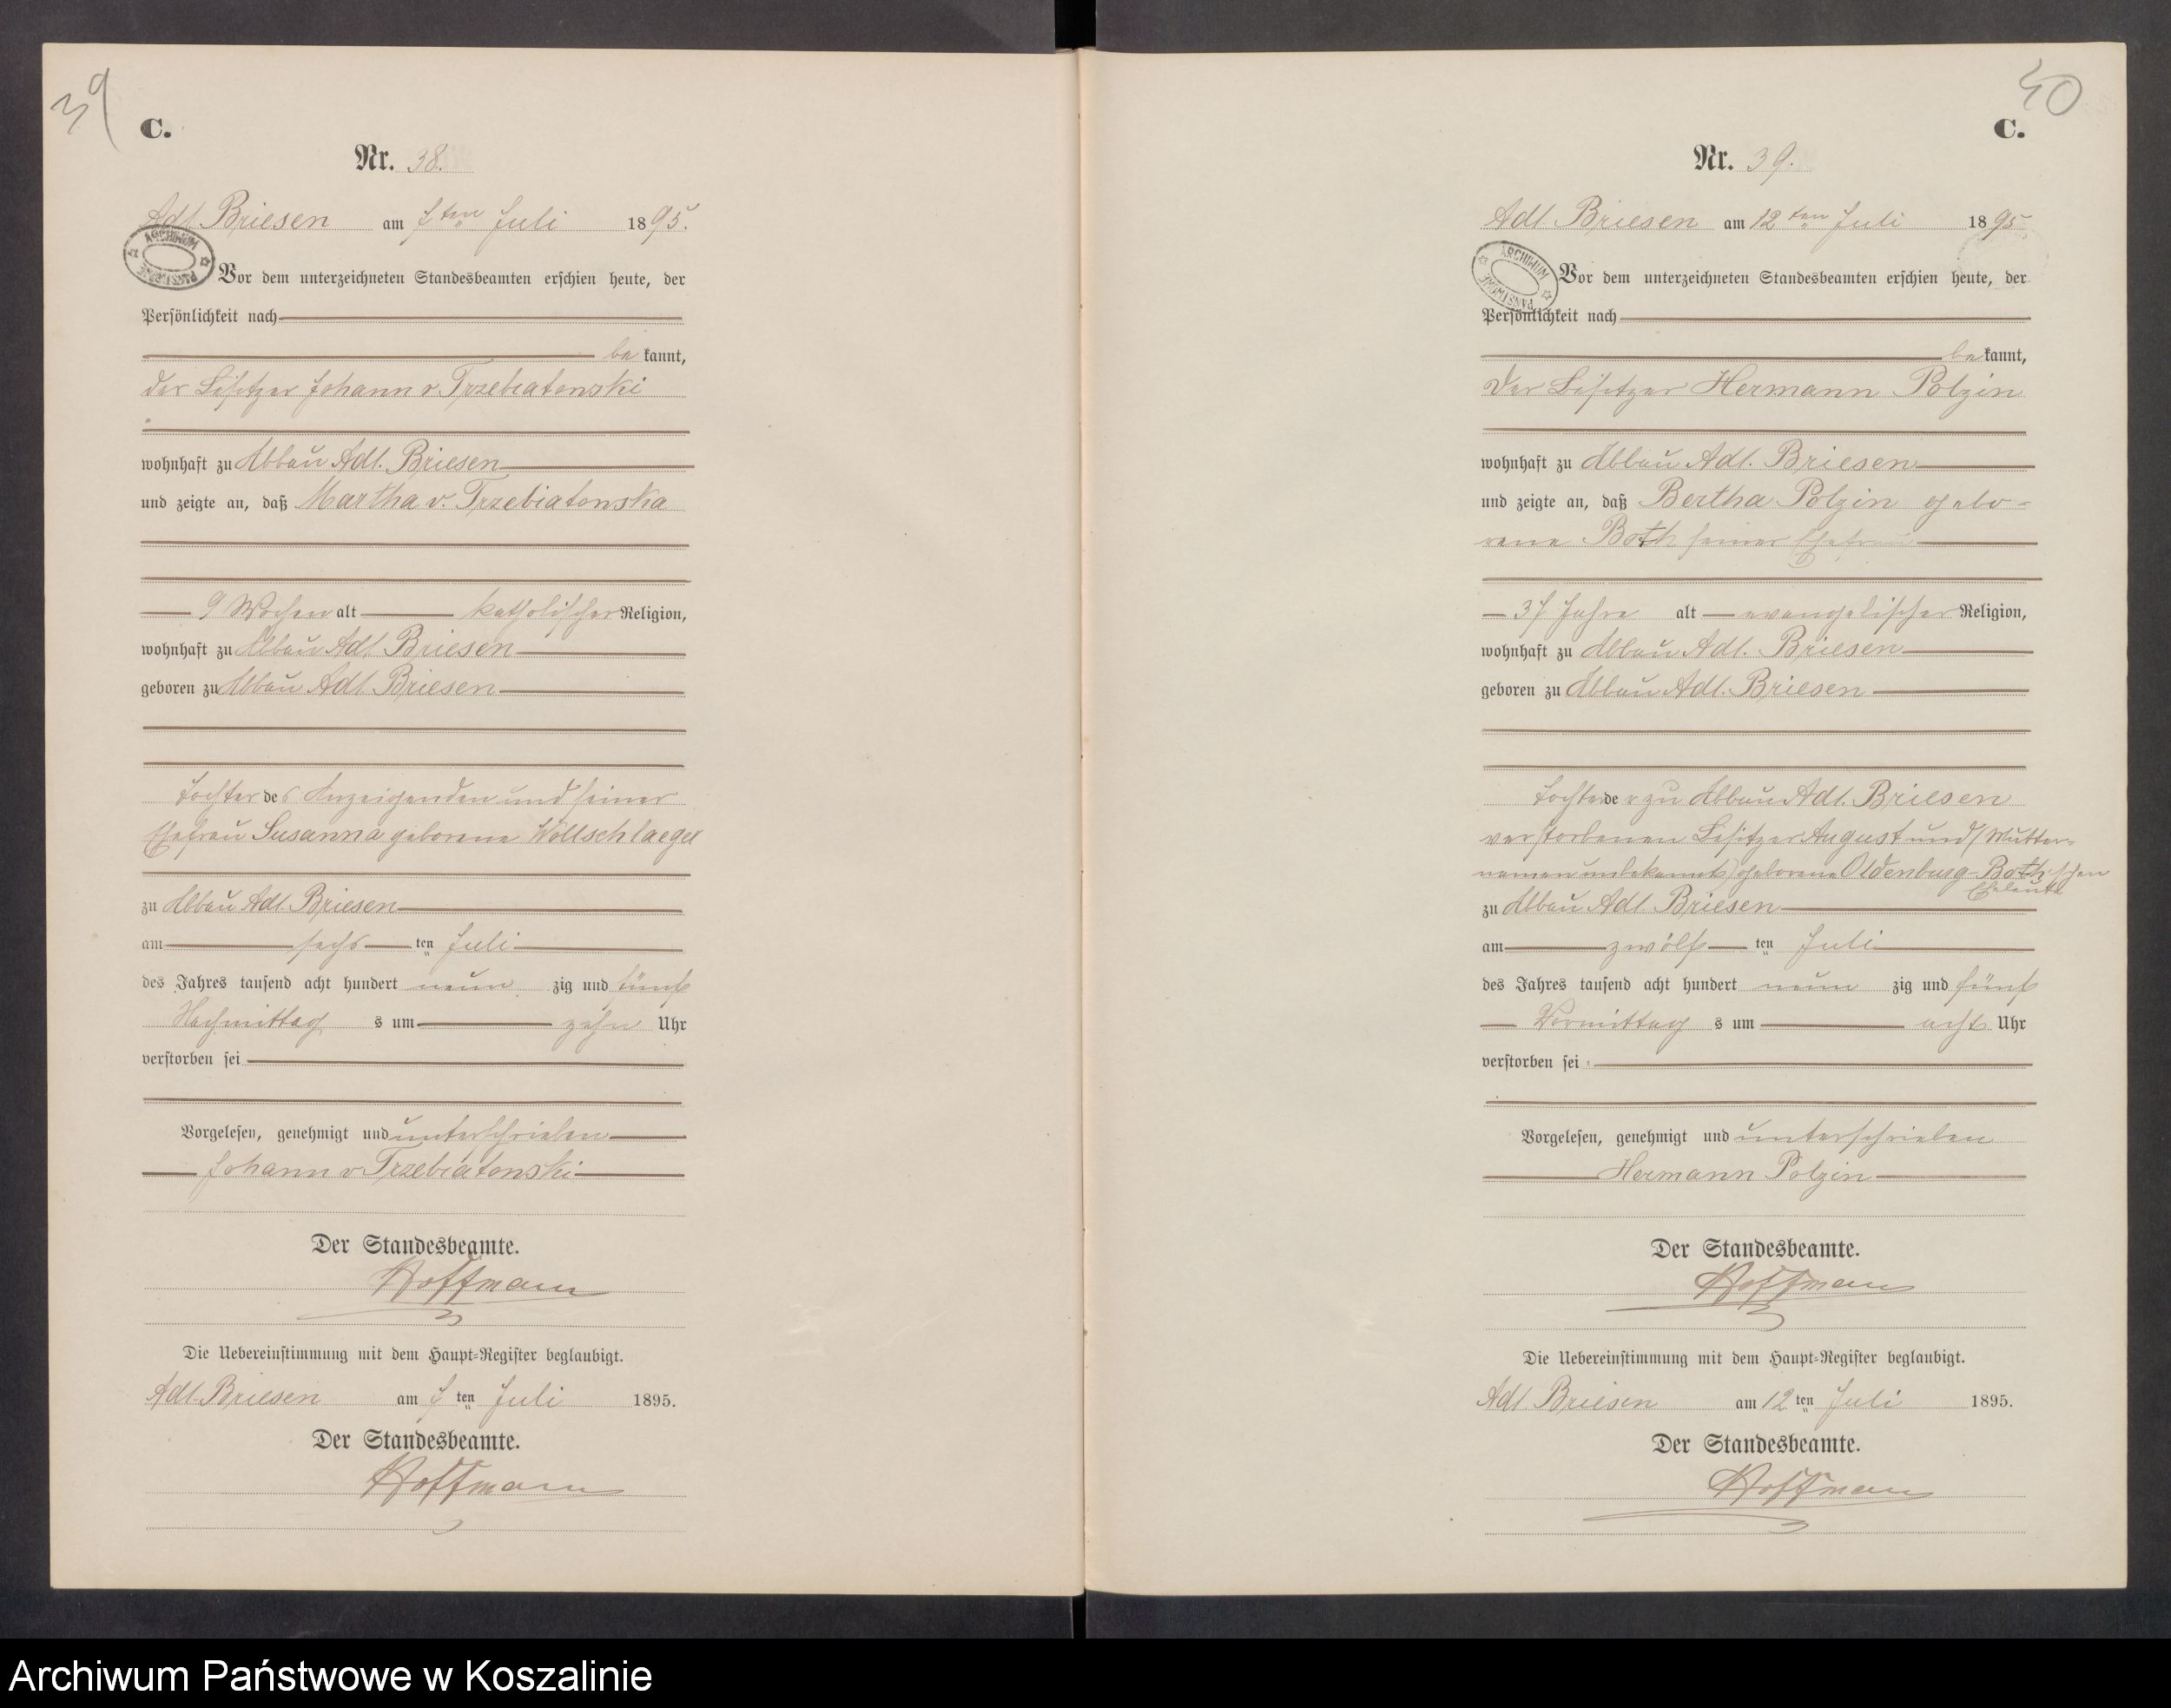 39
C.
Nr. 38.
Adl. Briesen am 7ten Juli 1895.
ARCHIWUM PAŃSTWOWE
Vor dem unterzeichneten Standesbeamten erschien heute, der
Persönlichkeit nach
be kannt,
der Besitzer Johann v. Trzebiatowski
wohnhaft zu Abbau Adl. Briesen
und zeigte an, daß Martha v. Trzebiatowska
9 Wochen alt katholischer Religion,
wohnhaft zu Abbau Adl. Briesen
geboren zu Abbau Adl. Briesen
Tochter des Anzeigenden und seiner
Ehefrau Susanna geborene Wollschlaeger
zu Abbau Adl. Briesen
am sechs ten Juli
des Jahres tausend acht hundert neun zig und fünf
Nachmittag s um zehn Uhr
verstorben sei
Vorgelesen, genehmigt und unterschrieben
Johann v Trzebiatowski
Der Standesbeamte.
Hoffmann
Die Uebereinstimmung mit dem Haupt-Register beglaubigt.
Adl. Briesen am 7 ten Juli 1895.
Der Standesbeamte.
Hoffmann
40
C.
Nr. 39.
Adl. Briesen am 12ten Juli 1895
ARCHIWUM PAŃSTWOWE
Vor dem unterzeichneten Standesbeamten erschien heute, der
Persönlichkeit nach
be kannt,
der Besitzer Hermann Polzin
wohnhaft zu Abbau Adl. Briesen
und zeigte an, daß Bertha Polzin gebo-
rene Both seiner Ehefrau
37 Jahre alt evangelischer Religion,
wohnhaft zu Abbau Adl. Briesen
geboren zu Abbau Adl. Briesen
Tochter der zu Abbau Adl. Briesen
verstorbenen Besitzer August und /Mutter-
namen unbekannt/ geborene Oldenburg-Both'schen
Eheleute
zu Abbau Adl. Briesen
am zwölf ten Juli
des Jahres tausend acht hundert neun zig und fünf
Vormittag s um acht Uhr
verstorben sei
Vorgelesen, genehmigt und unterschrieben
Hermann Polzin
Der Standesbeamte.
Hoffmann
Die Uebereinstimmung mit dem Haupt-Register beglaubigt.
Adl. Briesen am 12 ten Juli 1895.
Der Standesbeamte.
Hoffmann
Archiwum Państwowe w Koszalinie